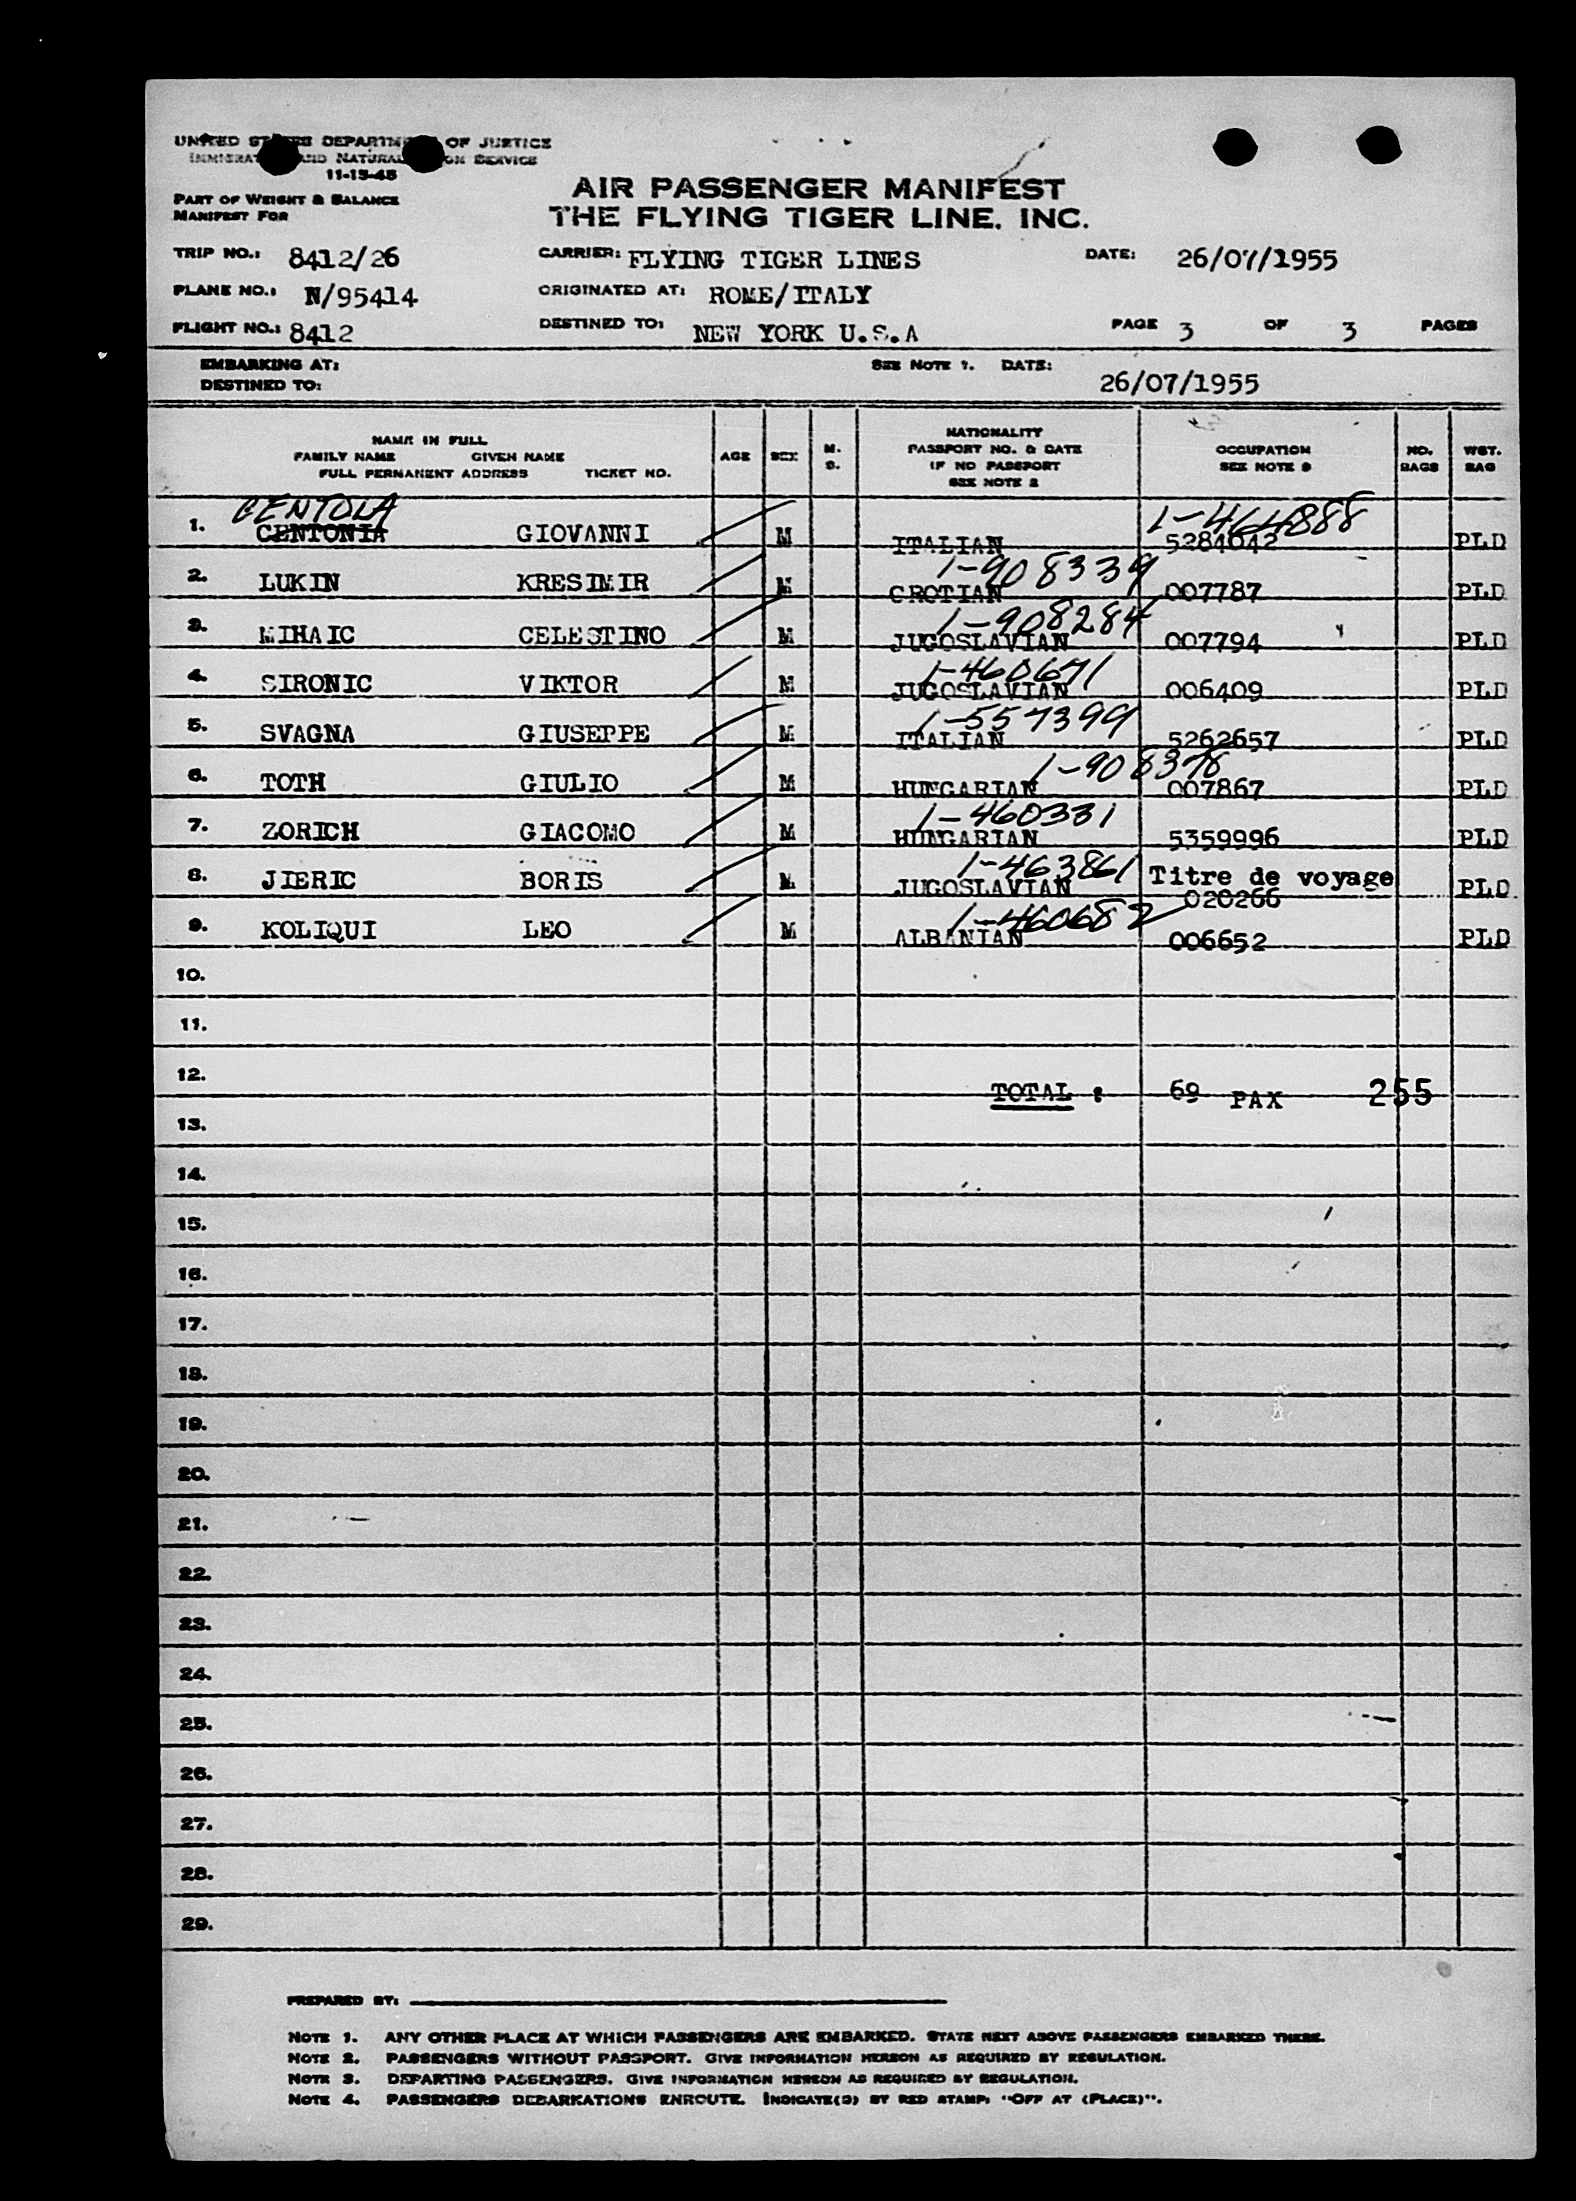 UNITED STATES DEPARTMENT OF JUSTICE
IMMIGRATION AND NATURALIZATION SERVICE
11-15-45
PART OF WEIGHT & BALANCE
MANIFEST FOR
AIR PASSENGER MANIFEST
THE FLYING TIGER LINE. INC.
TRIP NO.: 8412/26 CARRIER: FLYING TIGER LINES DATE: 26/07/1955
PLANE NO.: N/95414 ORIGINATED AT: ROME/ITALY
FLIGHT NO.: 8412 DESTINED TO: NEW YORK U.S.A PAGE 3 OF 3 PAGES
EMBARKING AT: SEE NOTE 1. DATE:
DESTINED TO: 26/07/1955
NAME IN FULL
FAMILY NAME GIVEN NAME
FULL PERMANENT ADDRESS TICKET NO.
AGE SEX M. S.
NATIONALITY
PASSPORT NO. & DATE
IF NO PASSPORT
SEE NOTE 2
OCCUPATION
SEE NOTE 3
NO. BAGS
WGT. BAG
CENTOLA 1-464888
1. CENTONIA GIOVANNI M ITALIAN 5284042 PLD
1-908339
2. LUKIN KRESIMIR M CROTIAN 007787 PLD
1-908284
3. MIHAIC CELESTINO M JUGOSLAVIAN 007794 PLD
1-460671
4. SIRONIC VIKTOR M JUGOSLAVIAN 006409 PLD
1-557399
5. SVAGNA GIUSEPPE M ITALIAN 5262657 PLD
1-908378
6. TOTH GIULIO M HUNGARIAN 007867 PLD
1-460331
7. ZORICH GIACOMO M HUNGARIAN 5359996 PLD
1-463861 Titre de voyage
8. JIERIC BORIS M JUGOSLAVIAN 020266 PLD
1-460682
9. KOLIQUI LEO M ALBANIAN 006652 PLD
10.
11.
12.
TOTAL : 69 PAX 255
13.
14.
15.
16.
17.
18.
19.
20.
21.
22.
23.
24.
25.
26.
27.
28.
29.
PREPARED BY:
NOTE 1. ANY OTHER PLACE AT WHICH PASSENGERS ARE EMBARKED. STATE NEXT ABOVE PASSENGERS EMBARKED THERE.
NOTE 2. PASSENGERS WITHOUT PASSPORT. GIVE INFORMATION HEREON AS REQUIRED BY REGULATION.
NOTE 3. DEPARTING PASSENGERS. GIVE INFORMATION HEREON AS REQUIRED BY REGULATION.
NOTE 4. PASSENGERS DEBARKATIONS ENROUTE. INDICATE(D) BY RED STAMP: "OFF AT (PLACE)".